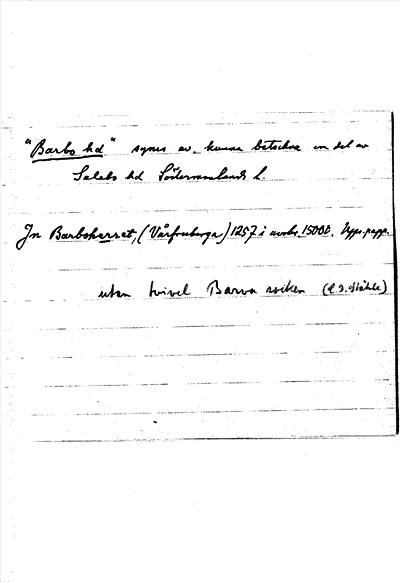 "Barbo hd" synes ev. kunna beteckna en del av
Selebo hd Södermanlands l.
In Barbokerret, (Vårfruberga) 1257 i avskr. 1500t. Upps. papp.
utan tvivel Barva socken (C.I. Ståhle)